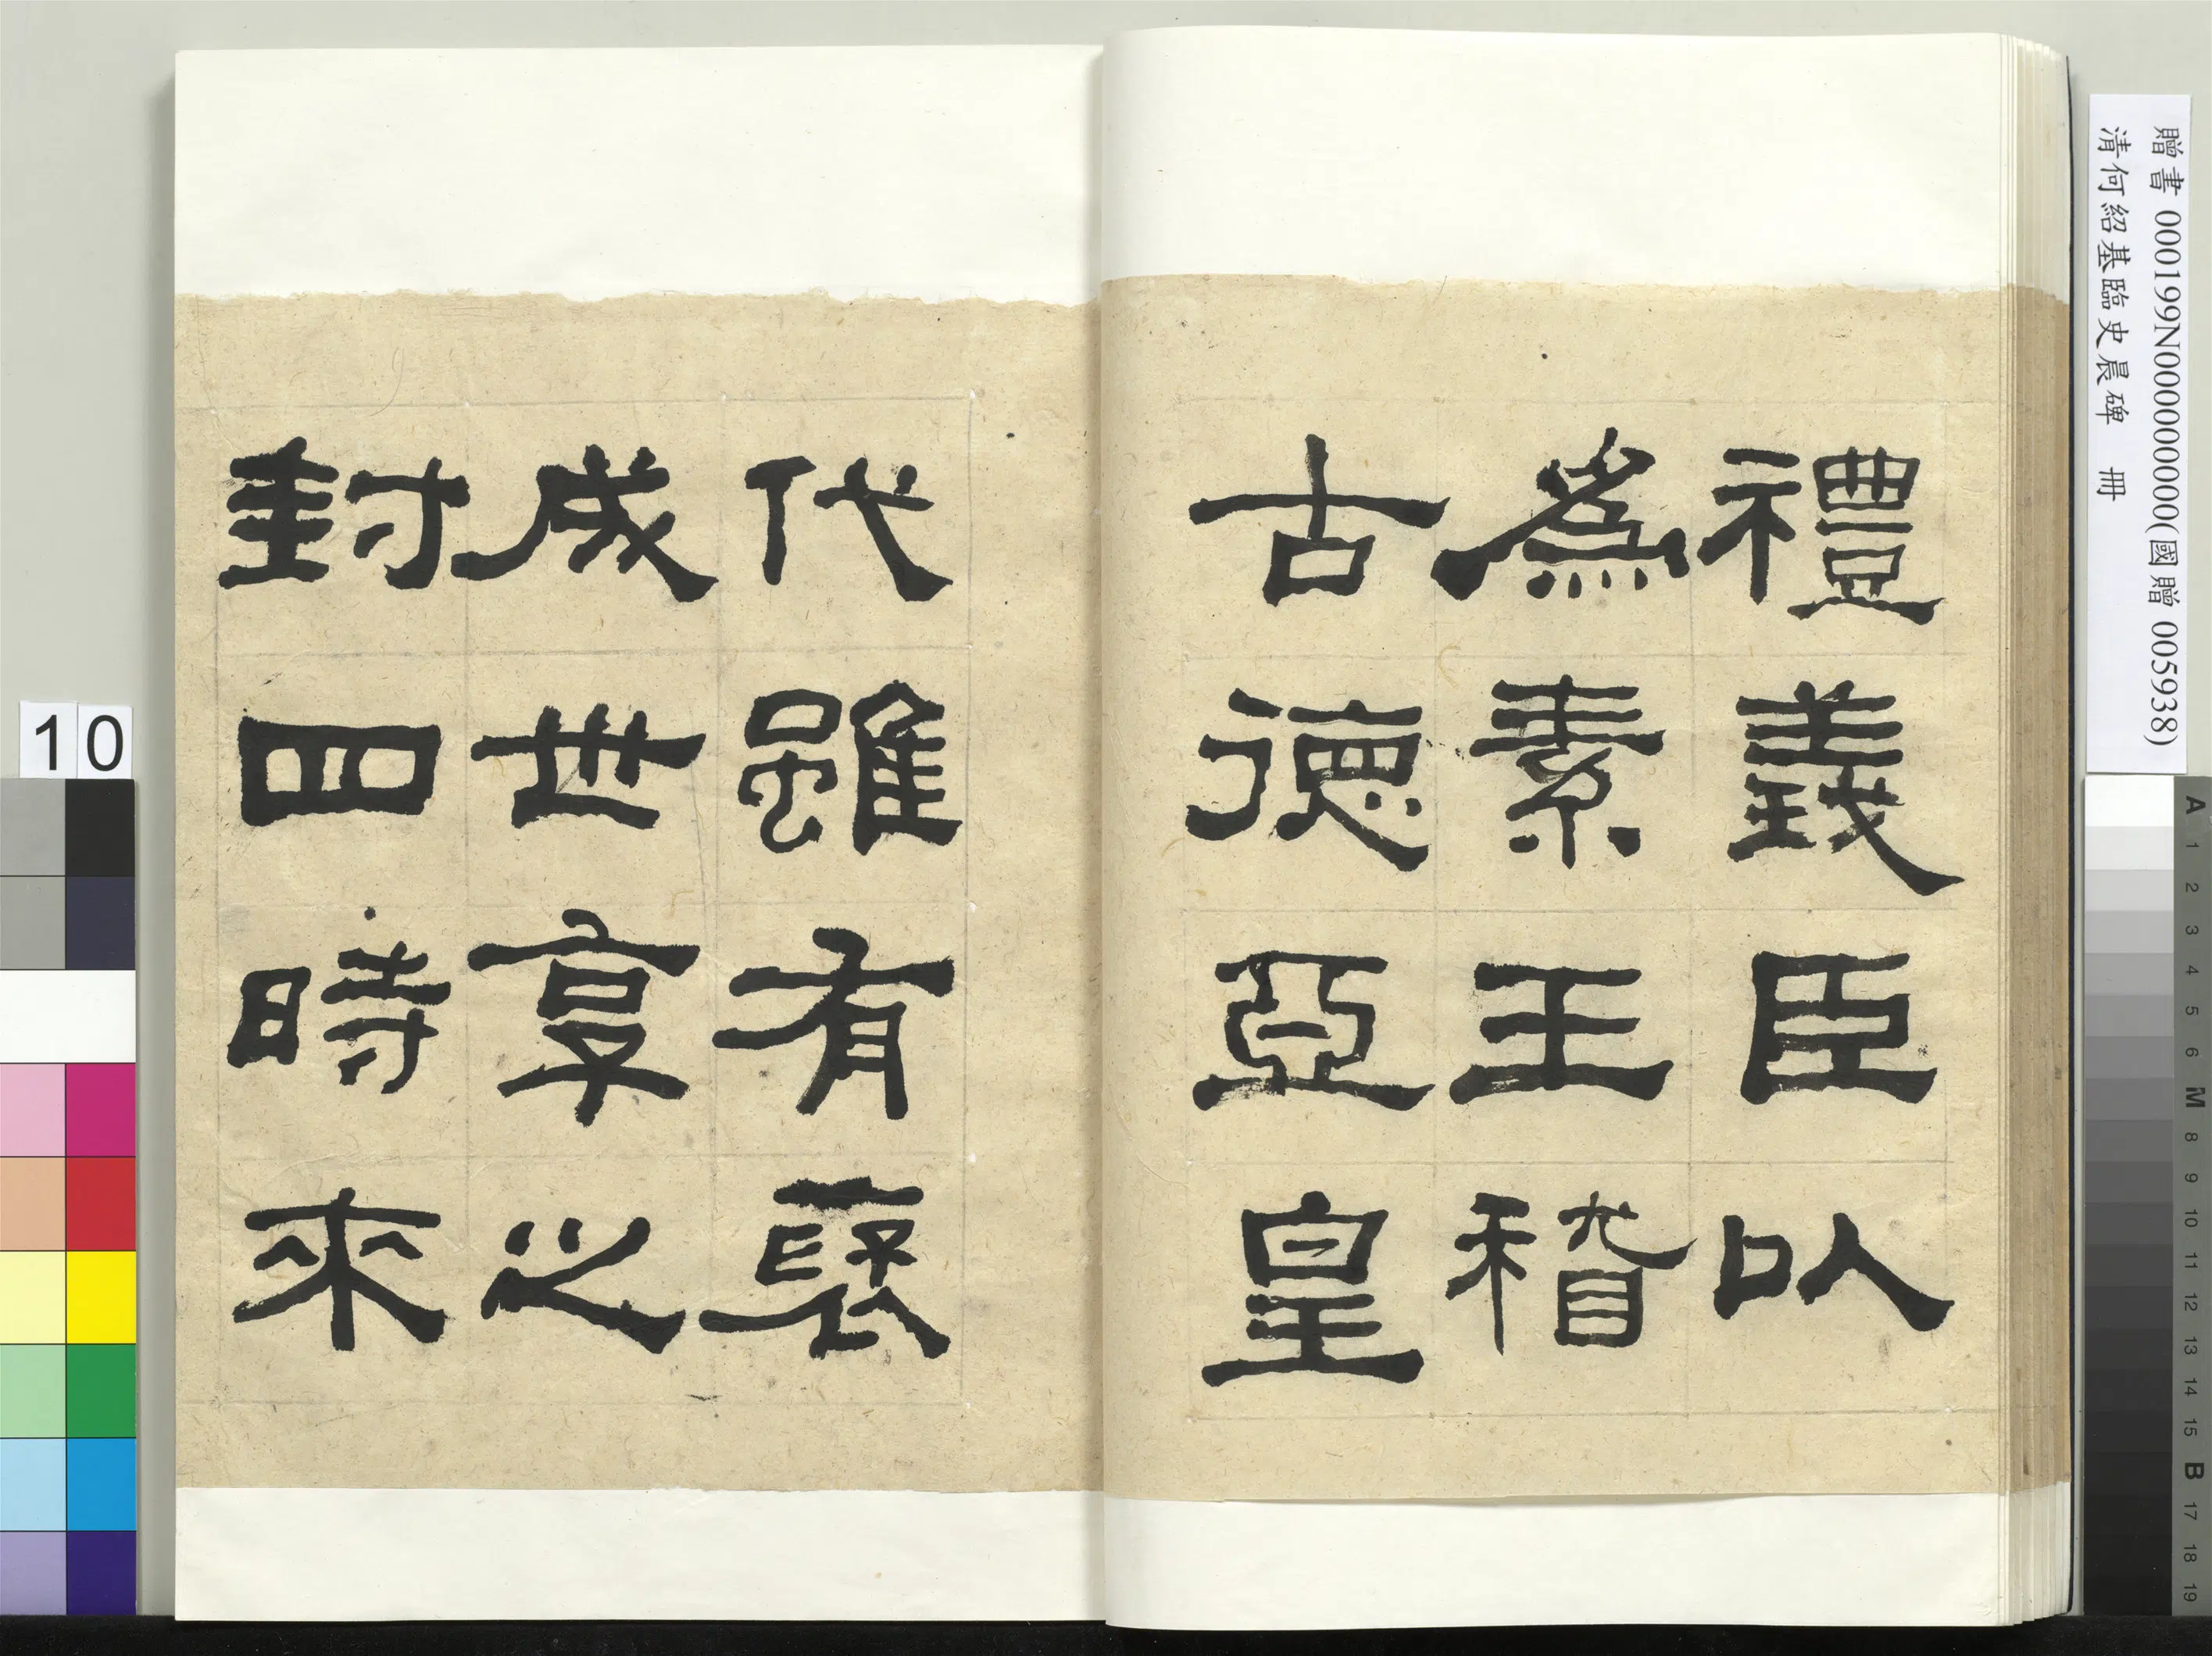 禮義臣以
爲素王稽
古德亞皇
代雖有襃
成世享之
封四時來
贈書 000199N000000000(國贈 005938)
清何紹基臨史晨碑 冊
10
A 1 2 3 4 5 6 M 8 9 10 11 12 13 14 15 B 17 18 19